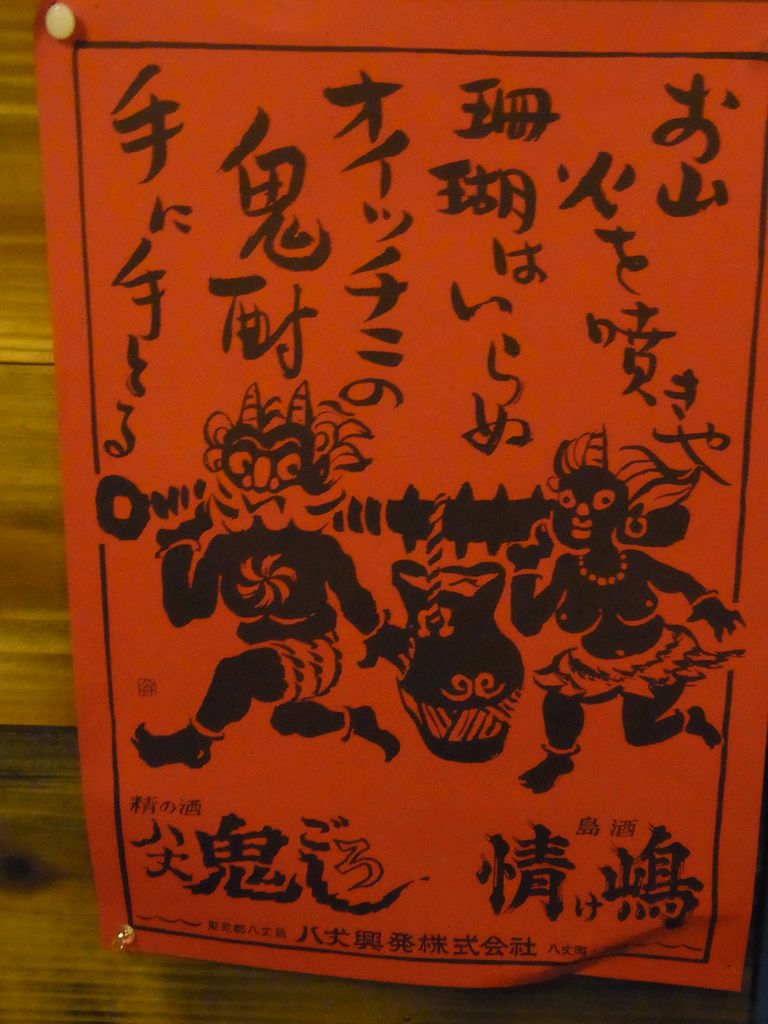 お山
火を噴きや
珊瑚はいらぬ
オイッチニの
鬼酎
手に手とる
島酒
情け嶋
精の酒
八丈鬼ごろし
東京都八丈島 八丈興発株式会社 八丈町